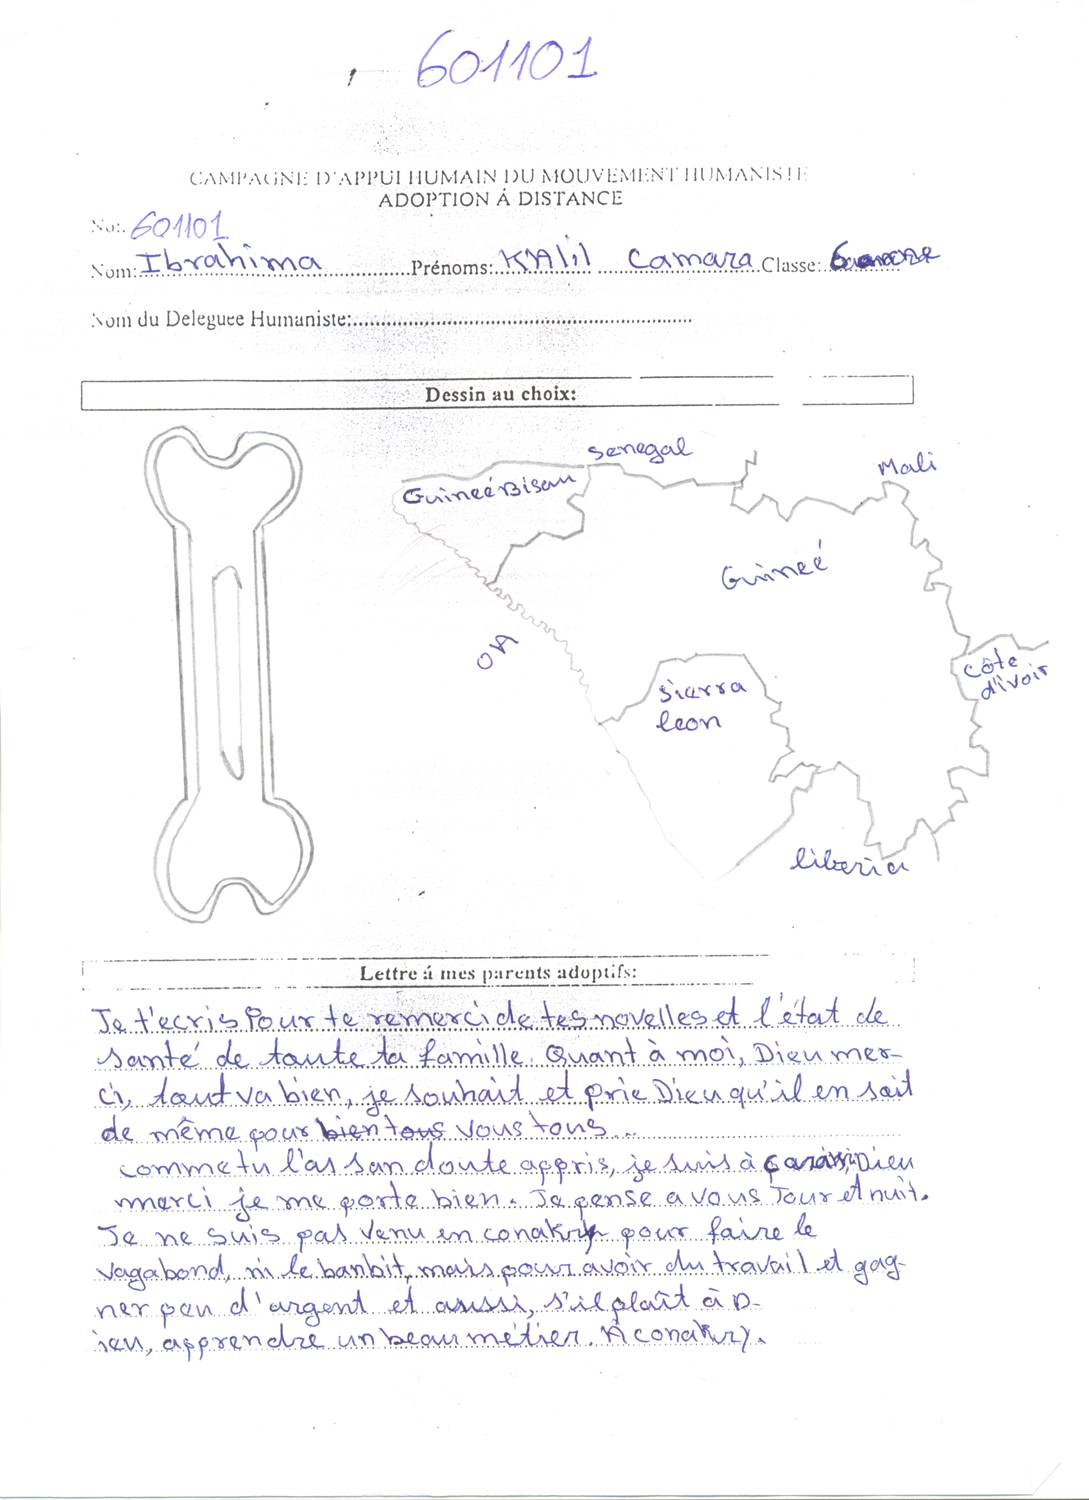 601101
CAMPAGNE D'APPUI HUMAIN DU MOUVEMENT HUMANISTE
ADOPTION Á DISTANCE
No:. 601101
Nom: Ibrahima Prénoms: K'Alil Camara Classe:
Nom du Deleguee Humaniste:
Dessin au choix:
Senegal
Mali
GuineéBisau
Guineé
OA
côte
d'ivoir
sierra
leon
liberia
Lettre á mes parents adoptifs:
Je t'ecris Pour te remerci de tes novelles et l'état de
santé de toute ta famille. Quant à moi, Dieu mer-
ci, tout va bien, je souhait et prie Dieu qu'il en soit
de même pour bien tous vous tous...
comme tu l'as san doute appris, je suis à Dieu
merci je me porte bien. Je pense a vous Jour et nuit.
Je ne suis pas venu en conakry pour faire le
vagabond, ni le banbit, mais pour avoir du travail et gag-
ner peu d'argent et aussi, s'il plaît à D-
ieu, apprendre un beau métier. À conakry.